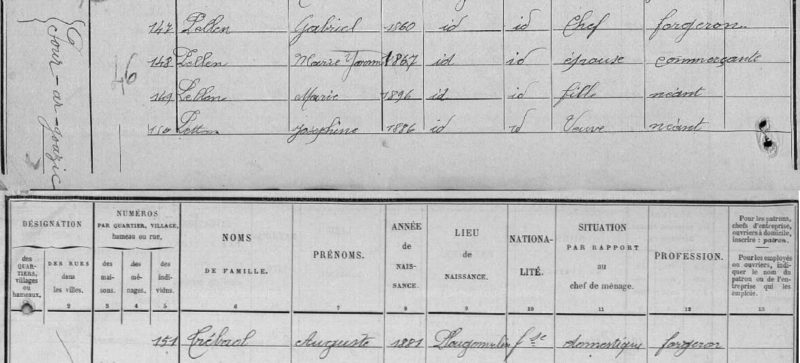 147 Pellen Gabriel 1860 id id Chef forgeron
148 Pellen Marie 1867 id id épouse commerçante
149 Pellen Marie 1896 id id fille néant
150 Joséphine 1886 id id Veuve néant
46
DÉSIGNATION
des QUARTIERS, villages ou hameaux.
DES RUES dans les villes.
2
NUMÉROS
PAR QUARTIER, VILLAGE,
hameau ou rue.
des maisons.
3
des ménages.
4
des individus.
5
NOMS
DE FAMILLE.
6
PRÉNOMS.
7
ANNÉE
de
NAISSANCE.
8
LIEU
de
NAISSANCE.
9
NATIONALITÉ.
10
SITUATION
PAR RAPPORT
au
chef de ménage.
11
PROFESSION.
12
Pour les patrons,
chefs d'entreprise,
ouvriers à domicile,
inscrire : patron.
Pour les employés
ou ouvriers, indiquer
le nom du
patron ou de l'entreprise
qui les
emploie.
13
151 Trébaol Auguste 1881 fse domestique forgeron